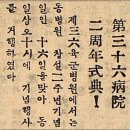 第三十六病院
二周年式典!
제三六육군병원에서는
동병원 창설二주년기념
일인 十六일을 맞아 동
일상오十시에 기념행사
를 거행하였다